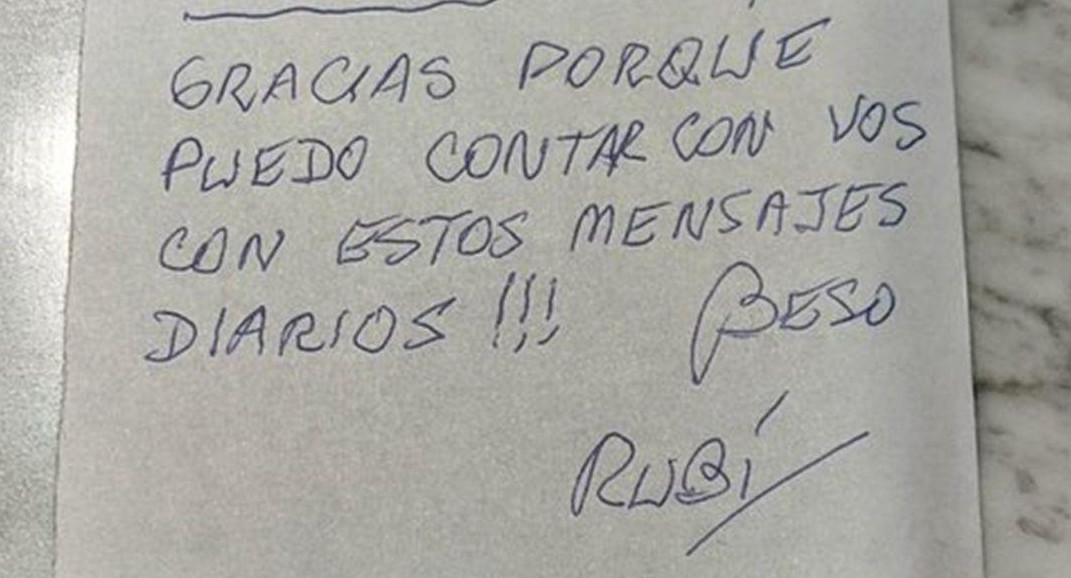 GRACIAS PORQUE
PUEDO CONTAR CON VOS
CON ESTOS MENSAJES
DIARIOS!!! BESO
RUBÍ